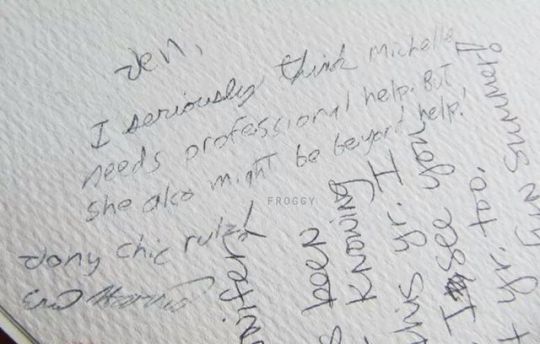 Jen,
I seriously think Michelle
needs professional help. But
she also might be beyond help!
Jony chic rulz!
FROGGY
been
knowing
this yr. I
I see you
yr. too,
fun summer!